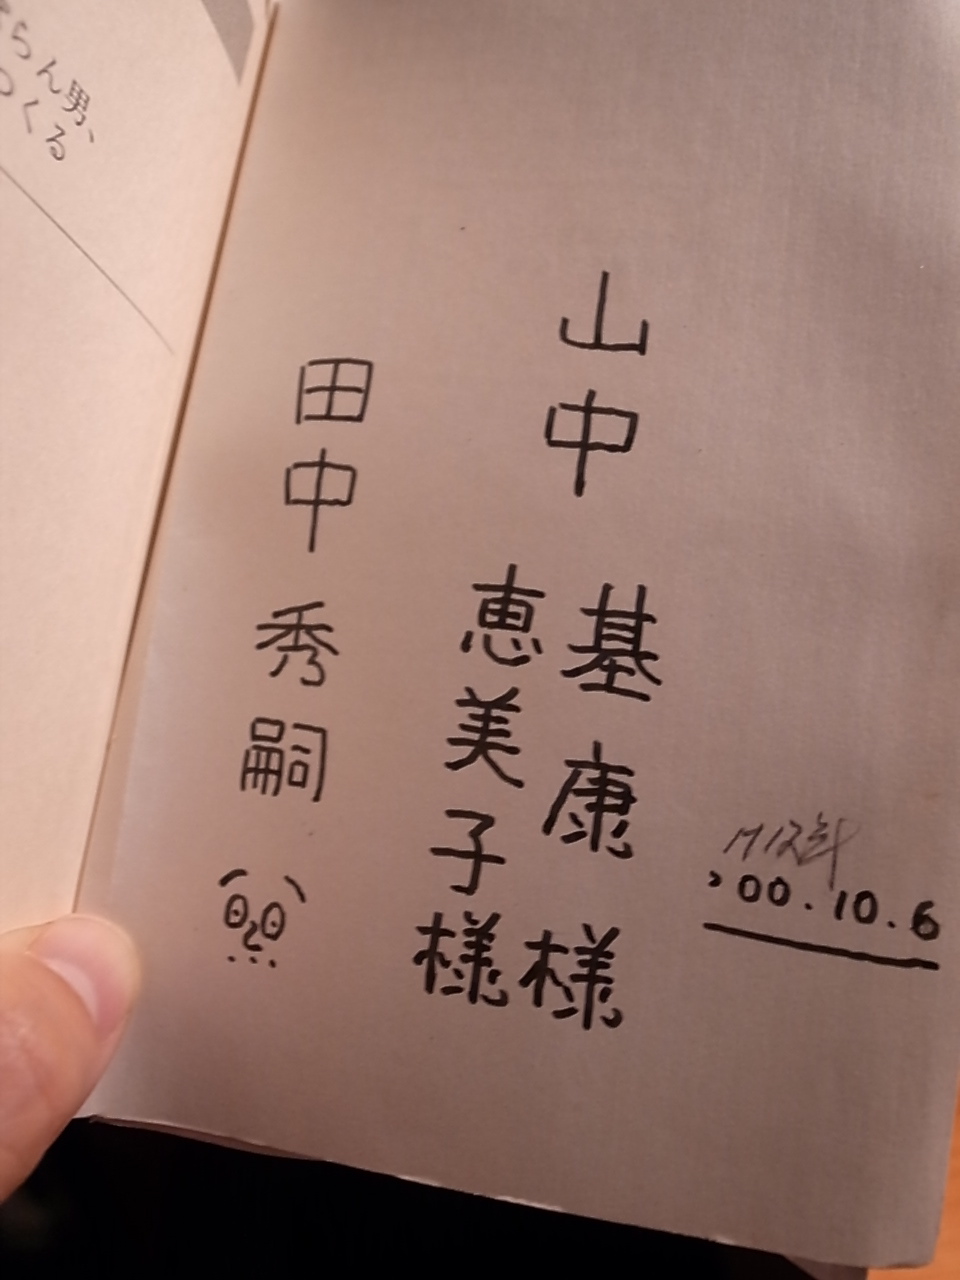 らん男、
つくる
山中 基康 様
恵美子 様
田中 秀嗣
'00.10.6